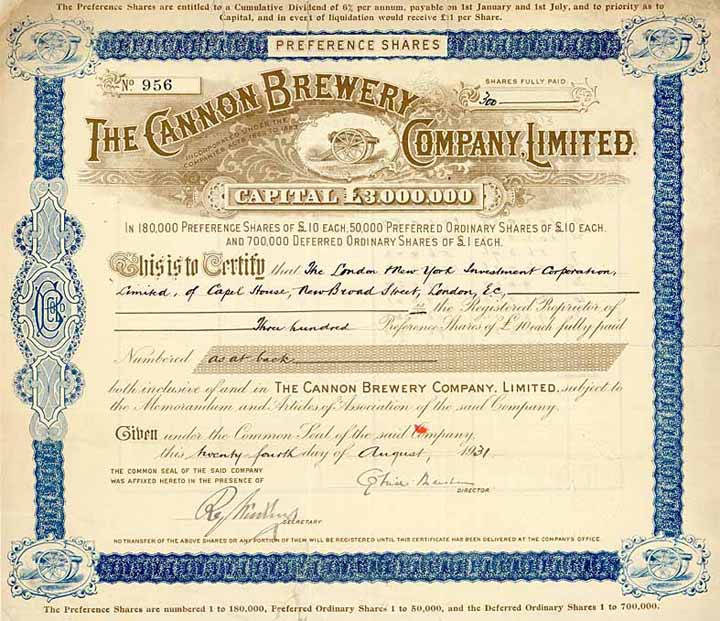 The Preference Shares are entitled to a Cumulative Dividend of 6% per annum, payable on 1st January and 1st July, and to priority as to
Capital, and in event of liquidation would receive £1 per Share.
PREFERENCE SHARES
No 956
SHARES FULLY PAID
300
THE CANNON BREWERY
COMPANY, LIMITED.
INCORPORATED UNDER THE
COMPANIES ACTS 1862 TO
CAPITAL £3,000,000
IN 180,000 PREFERENCE SHARES OF £10 EACH, 50,000 PREFERRED ORDINARY SHARES OF £10 EACH.
AND 700,000 DEFERRED ORDINARY SHARES OF £1 EACH.
This is to Certify that The London & New York Investment Corporation,
Limited, of Capel House, New Broad Street, London, E.C.,
is the Registered Proprietor of
Three hundred Preference Shares of £10 each fully paid
Numbered as at back
both inclusive of and in THE CANNON BREWERY COMPANY, LIMITED, subject to
the Memorandum and Articles of Association of the said Company.
Given under the Common Seal of the said Company,
this twenty fourth day of August, 1931
THE COMMON SEAL OF THE SAID COMPANY
WAS AFFIXED HERETO IN THE PRESENCE OF
DIRECTOR
SECRETARY
NO TRANSFER OF THE ABOVE SHARES OR ANY PORTION OF THEM WILL BE REGISTERED UNTIL THIS CERTIFICATE HAS BEEN DELIVERED AT THE COMPANY'S OFFICE.
The Preference Shares are numbered 1 to 180,000, Preferred Ordinary Shares 1 to 50,000, and the Deferred Ordinary Shares 1 to 700,000.